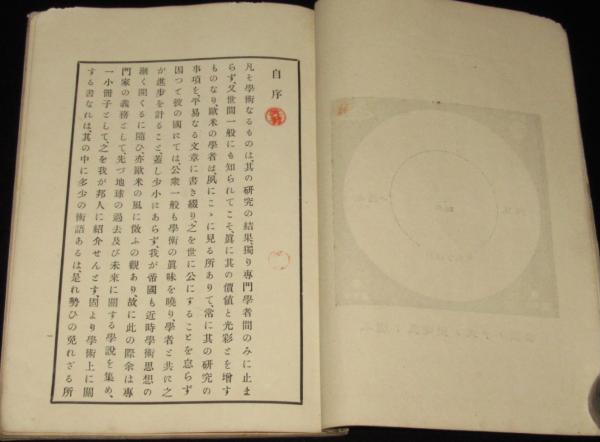 自序
凡そ學術なるものは、其の研究の結果、獨り專門學者間のみに止ま
らず、又世間一般にも知られてこそ、眞に其の價値と光彩とを增す
ものなり、歐米の學者は、夙にこゝに見る所ありて、常に其の研究の
事項を、平易なる文章に書き綴り、之を世に公にすることを怠らず
因つて彼の國にては、公衆一般も學術の眞味を曉り、學者と共に之
が進步を計ること、蓋し少小にあらず、我が帝國も近時學術思想の
漸く開くるに隨ひ、亦歐米の風に倣ふの觀あり、故に此の際余は專
門家の義務として、先づ地球の過去及び未來に關する學說を集め、
一小冊子として、之を我が邦人に紹介せんとす、固より學術上に關
する書なれば、其の中に多少の術語あるは、是れ勢ひの免れざる所
一